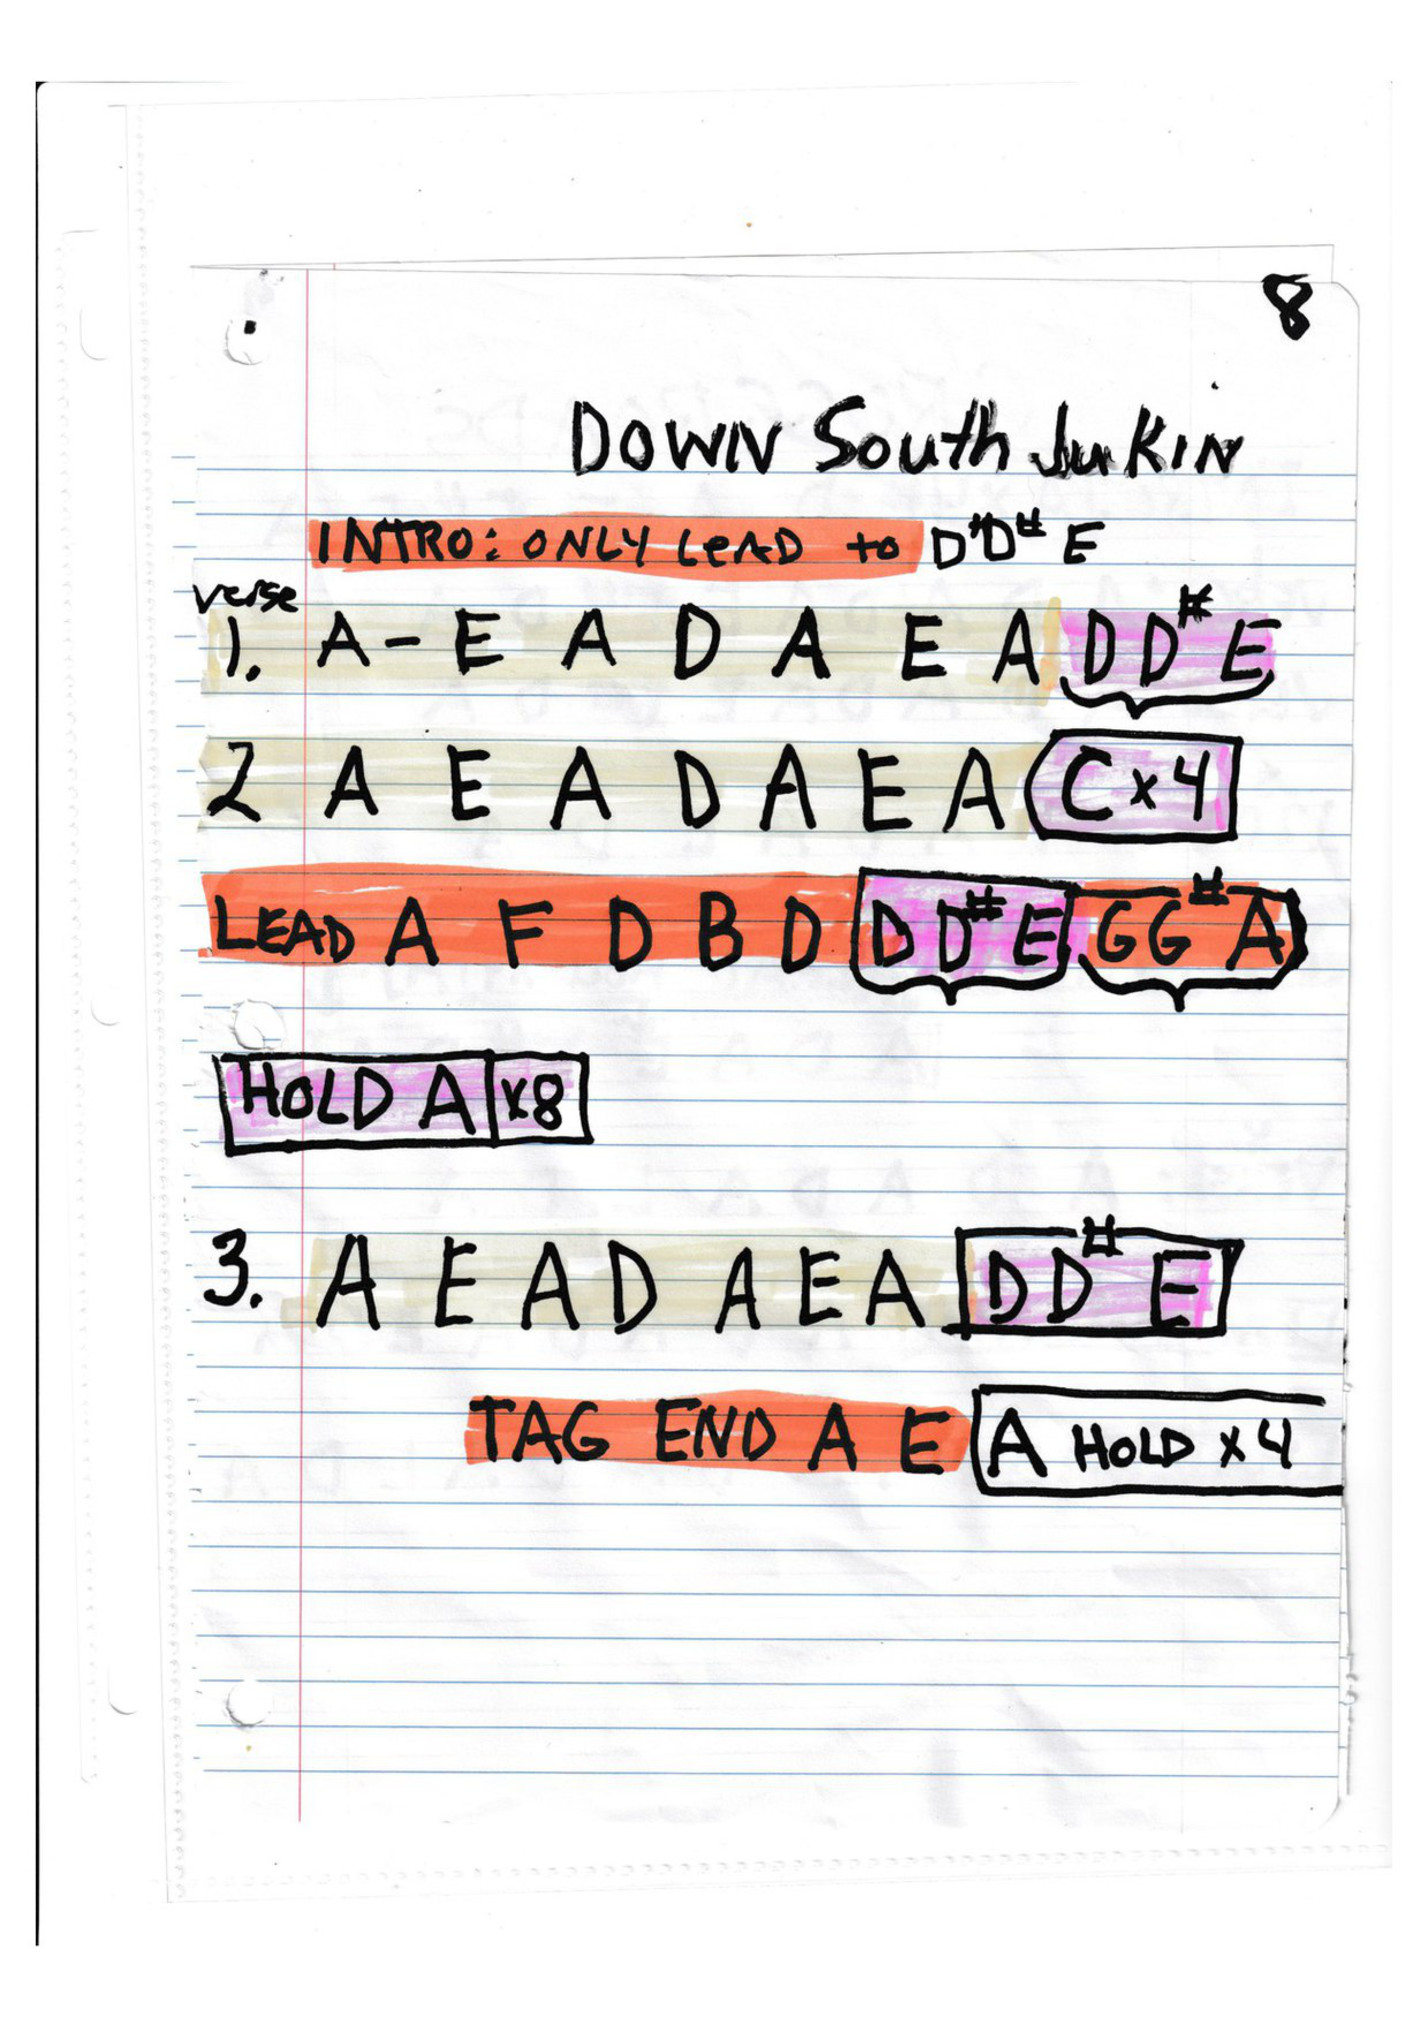 8
DOWN South JuKIN
INTRO: ONLY LEAD to D"D# E
verse
1. A - E A D A E A D D# E
2 A E A D A E A C x 4
LEAD A F D B D D D# E G G# A
HOLD A x8
3. A E A D A E A D D# E
TAG END A E A HOLD x 4